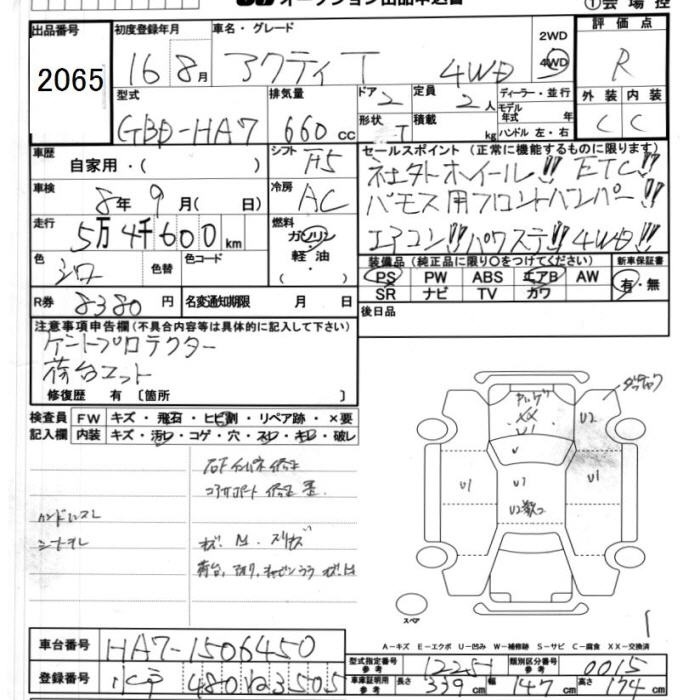 オークション出品申込書
①会場控
出品番号 初度登録年月 車名・グレード 評価点
2065 16 8月 アクティ T 4WD 2WD 4WD R
型式 排気量 ドア 2 定員 2人 ディーラー・並行 外装 内装
GBD-HA7 660cc 形状 T 積載 kg モデル年式 年 ハンドル 左・右 C C
車歴 自家用・( ) シフト F5 セールスポイント(正常に機能するものに限ります)
社外ホイール!! ETC!!
車検 8年 9月( 日) 冷房 AC バモス用フロントバンパー!!
走行 5万4千600km 燃料 ガソリン・軽油・( ) エアコン!! パワステ!! 4WD!!
色 シロ 色替 色コード 装備品(純正品に限り○をつけてください) 新車保証書
PS PW ABS エアB AW 有・無
SR ナビ TV カワ
R券 8380円 名変通期限 月 日 後日品
注意事項申告欄(不具合内容等は具体的に記入して下さい)
ゲートプロテクター
荷台マット
修復歴 有 〔箇所 〕
検査員 FW キズ・飛石・ヒビ割・リペア跡・×要
記入欄 内装 キズ・汚レ・コゲ・穴・スレ・キレ・破レ
ハンドルスレ
シートスレ
コアサポート
U2
XX
U1
U1
U1
スペア
A-キズ E-エクボ U-凹み W-補修跡 S-サビ C-腐食 XX-交換済
車台番号 HA7-1506450
型式指定番号 参考 12251 類別区分番号 参考 0015
登録番号 480 3505
車庫証明用 参考 長さ 339cm 幅 147cm 高さ 174cm